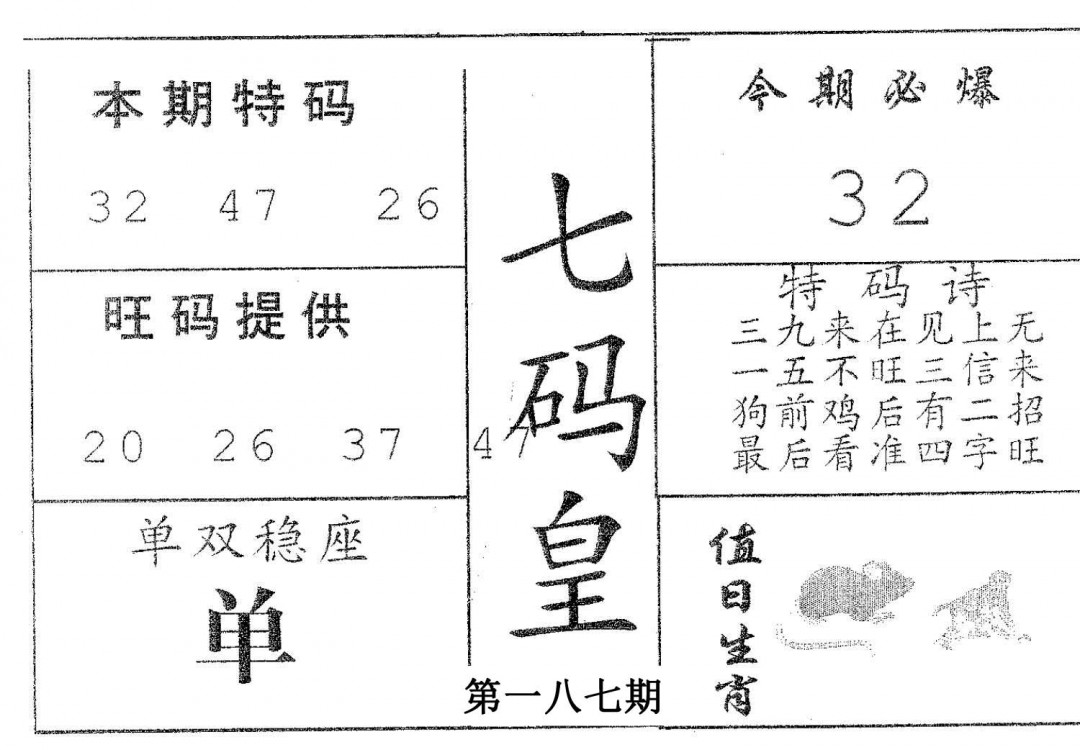 本期特码
32 47 26
旺码提供
20 26 37 47
单双稳座
单
七码皇
第一八七期
今期必爆
32
特码诗
三九来在见上无
一五不旺三信来
狗前鸡后有二招
最后看准四字旺
值日生肖